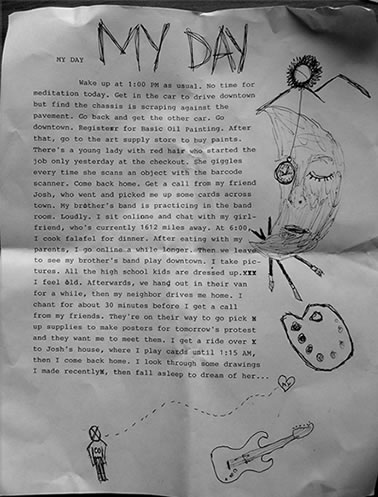 MY DAY
MY DAY
Wake up at 1:00 PM as usual. No time for
meditation today. Get in the car to drive downtown
but find the chassis is scraping against the
pavement. Go back and get the other car. Go
downtown. Register for Basic Oil Painting. After
that, go to the art supply store to buy paints.
There's a young lady with red hair who started the
job only yesterday at the checkout. She giggles
every time she scans an object with the barcode
scanner. Come back home. Get a call from my friend
Josh, who went and picked me up some cards across
town. My brother's band is practicing in the band
room. Loudly. I sit online and chat with my girl-
friend, who's currently 1612 miles away. At 6:00,
I cook falafel for dinner. After eating with my
parents, I go online a while longer. Then we leave
to see my brother's band play downtown. I take pic-
tures. All the high school kids are dressed up.xxx
I feel old. Afterwards, we hang out in their van
for a while, then my neighbor drives me home. I
chant for about 30 minutes before I get a call
from my friends. They're on their way to go pick
up supplies to make posters for tomorrow's protest
and they want me to meet them. I get a ride over
to Josh's house, where I play cards until 1:15 AM,
then I come back home. I look through some drawings
I made recently, then fall asleep to dream of her...
CO